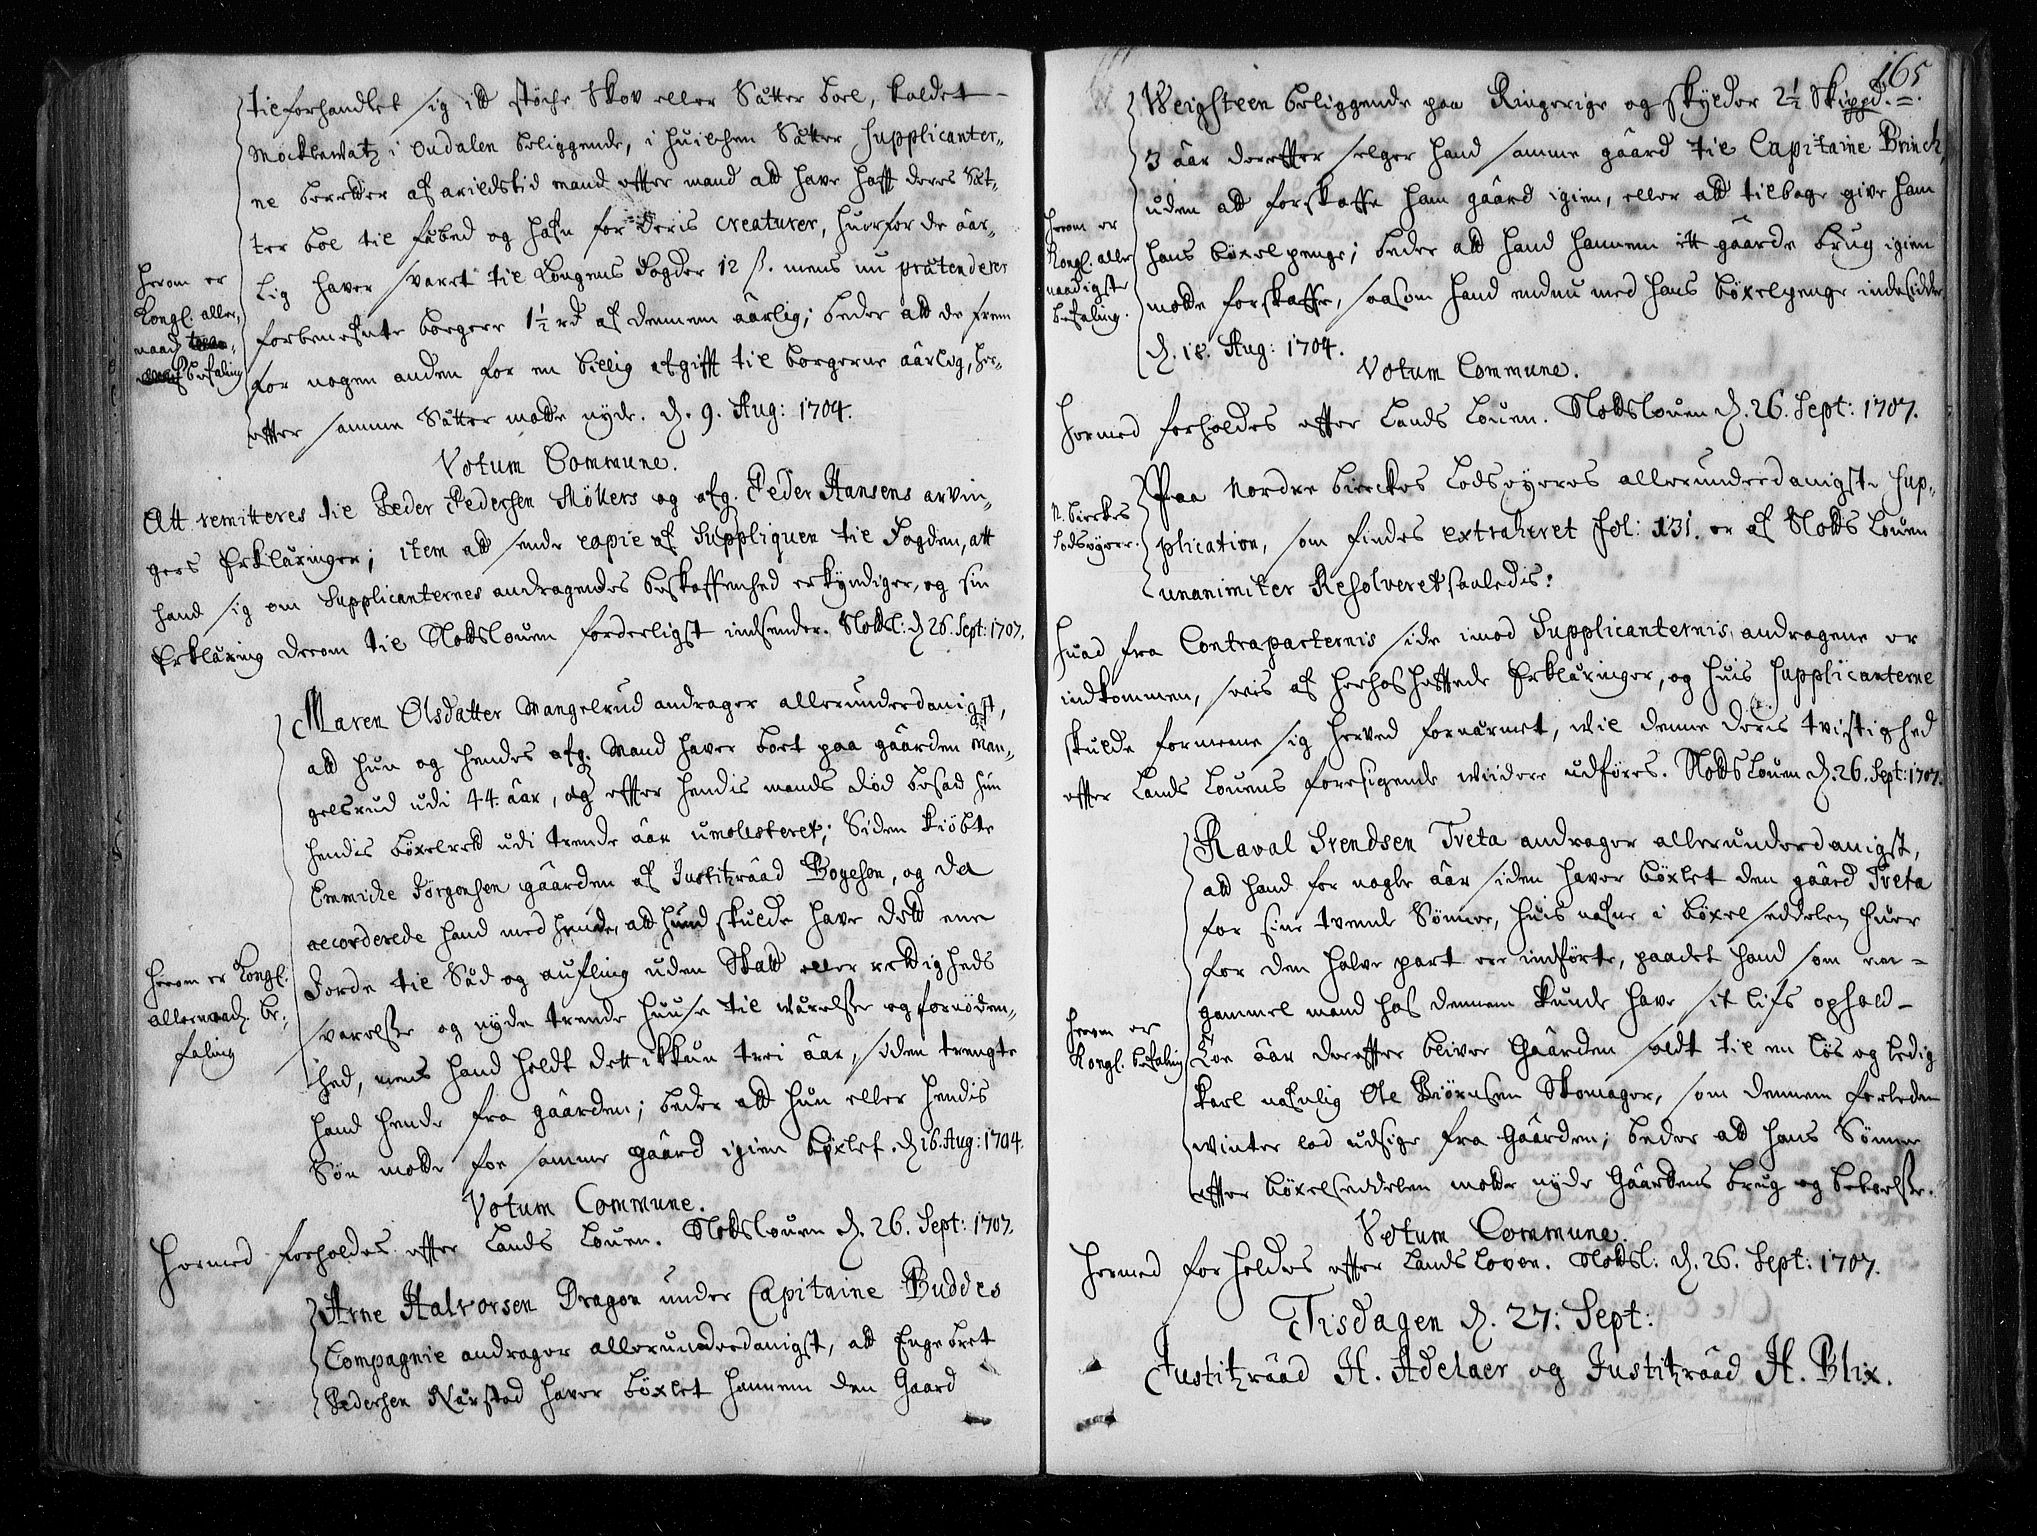 tilforhandlet sig itt støche Skov eller Sætter boel, kaldet
Mockewatz i Oudalen beliggende, i huilchen Sætter Supplicanter-
ne beretter af arildstid mand effter mand att have hafft deres Sæt-
ter boel til fæbed og hafn for deris Creaturer, huorfor de aar-
lig haver svaret til Kongens Fogder 12 ß. mens nu prætenderer
forbenefnte borgere 1½ rd af dennem aarlig; beder att de frem
for nogen anden for en billig afgifft til borgerne aarlig, her-
effter samme Sætter motte nyde. d. 9. Aug: 1704.
herom er
Kongl. aller-
naad
befaling
Votum Commune.
Att remitteres til Peder Pedersen Møllers og afg. Peder Hansens arvin-
gers Erklæringer; item att sende copie af Suppliquen til Fogden, att
hand sig om Supplicanternes andragendes beskaffenhed erkyndiger, og sin
Erklæring derom til Slottslouen forderligst indsender. Slottsl: d. 26. Sept: 1707.
Maren Olsdatter Mangelrud andrager allerunderdanigst,
att hun og hendes afg. Mand haver boet paa gaarden Man-
gelsrud udi 44. aar, og effter hendis mands død besad hun
hendis bøxelrett udi trende aar umolesteret; Siden kiøbte
Emmiche Jørgensen gaarden af Justitzraad Bogesen, og da
accorderede hand med hende, att hund skulde have dett ene
Jorde til Sæd og aufling uden Skatt eller rettigheds
svarelsse og nyde trende huuse til værelsse og fornøden-
hed, mens hand holdt dett ikkun trei aar, siden trengte
hand hende fra gaarden; beder att hun eller hendis
Søn motte foe samme gaard igien bøxlet. d. 16. Aug: 1704.
herom er Kongl.
allernaad. be-
faling
Votum Commune.
Hermed forholdes effter Lands Louen. Slottslouen d. 26. Sept: 1707.
Arne Halvorsen Dragon under Capitaine Buddes
Compagnie andrager allerunderdanigst, att Engebret
Pedersen Nærstad haver bøxlet hannem den Gaard
165
Weigsteen beliggende paa Ringerige og skylder 2½ Skippd.
3 aar dereffter selger hand samme gaard til Capitaine Brinch,
uden att forskaffe ham gaard igien, eller att tilbage give ham
hans bøxelpenge; beder att hand hannem itt gaarde brug igien
motte forskaffe, saasom hand endnu med hans bøxelpenge indesidder
d. 18. Aug: 1704.
herom er
Kongl. aller
naadigste
befaling.
Votum Commune.
Hermed forholdes effter Lands Louen. Slottslouen d. 26. Sept: 1707.
Paa Nordre Bierckes Lodseyeres allerunderdanigste Sup-
plication, som findes extraheret fol: 131. er af Slotts Louen
unanimiter Resolveret saaledis:
N. Bierkes
Lodseyere.
Huad fra Contraparternis side imod Supplicanternis andragene er
indkommen, sees af herhos hefftede Erklæringer, og huis Supplicanterne
skulde formeene sig herved fornærmet, wil denne deris tvistighed
effter Lands Louens foresigende widere udføres. Slottslouen d. 26. Sept: 1707.
Raval Svendsen Tveta andrager allerunderdanigst,
att hand for nogle aar siden haver bøxlet den gaard Tveta
for sine tvende Sønner, huis nafne i bøxelseddelen huer
for den halve part ere indførte, paadet hand som en
gammel mand hos dennem kunde have sit lifs ophold
Toe aar dereffter bliver Gaarden soldt til en løs og ledig
karl nafnlig Ole Biørnsen Skomager, som dennem forleden
winter lod udsige fra Gaarden; beder att hans Sønner
effter bøxelseddelen motte nyde Gaardens brug og besidelsse.
herom er
Kongl. befaling
Votum Commune.
Hermed forholdes effter Lands Loven. Slottsl: d. 26. Sept: 1707.
Tisdagen d. 27: Sept:
Justitzraad H. Adelaer og Justitzraad H. Blix.